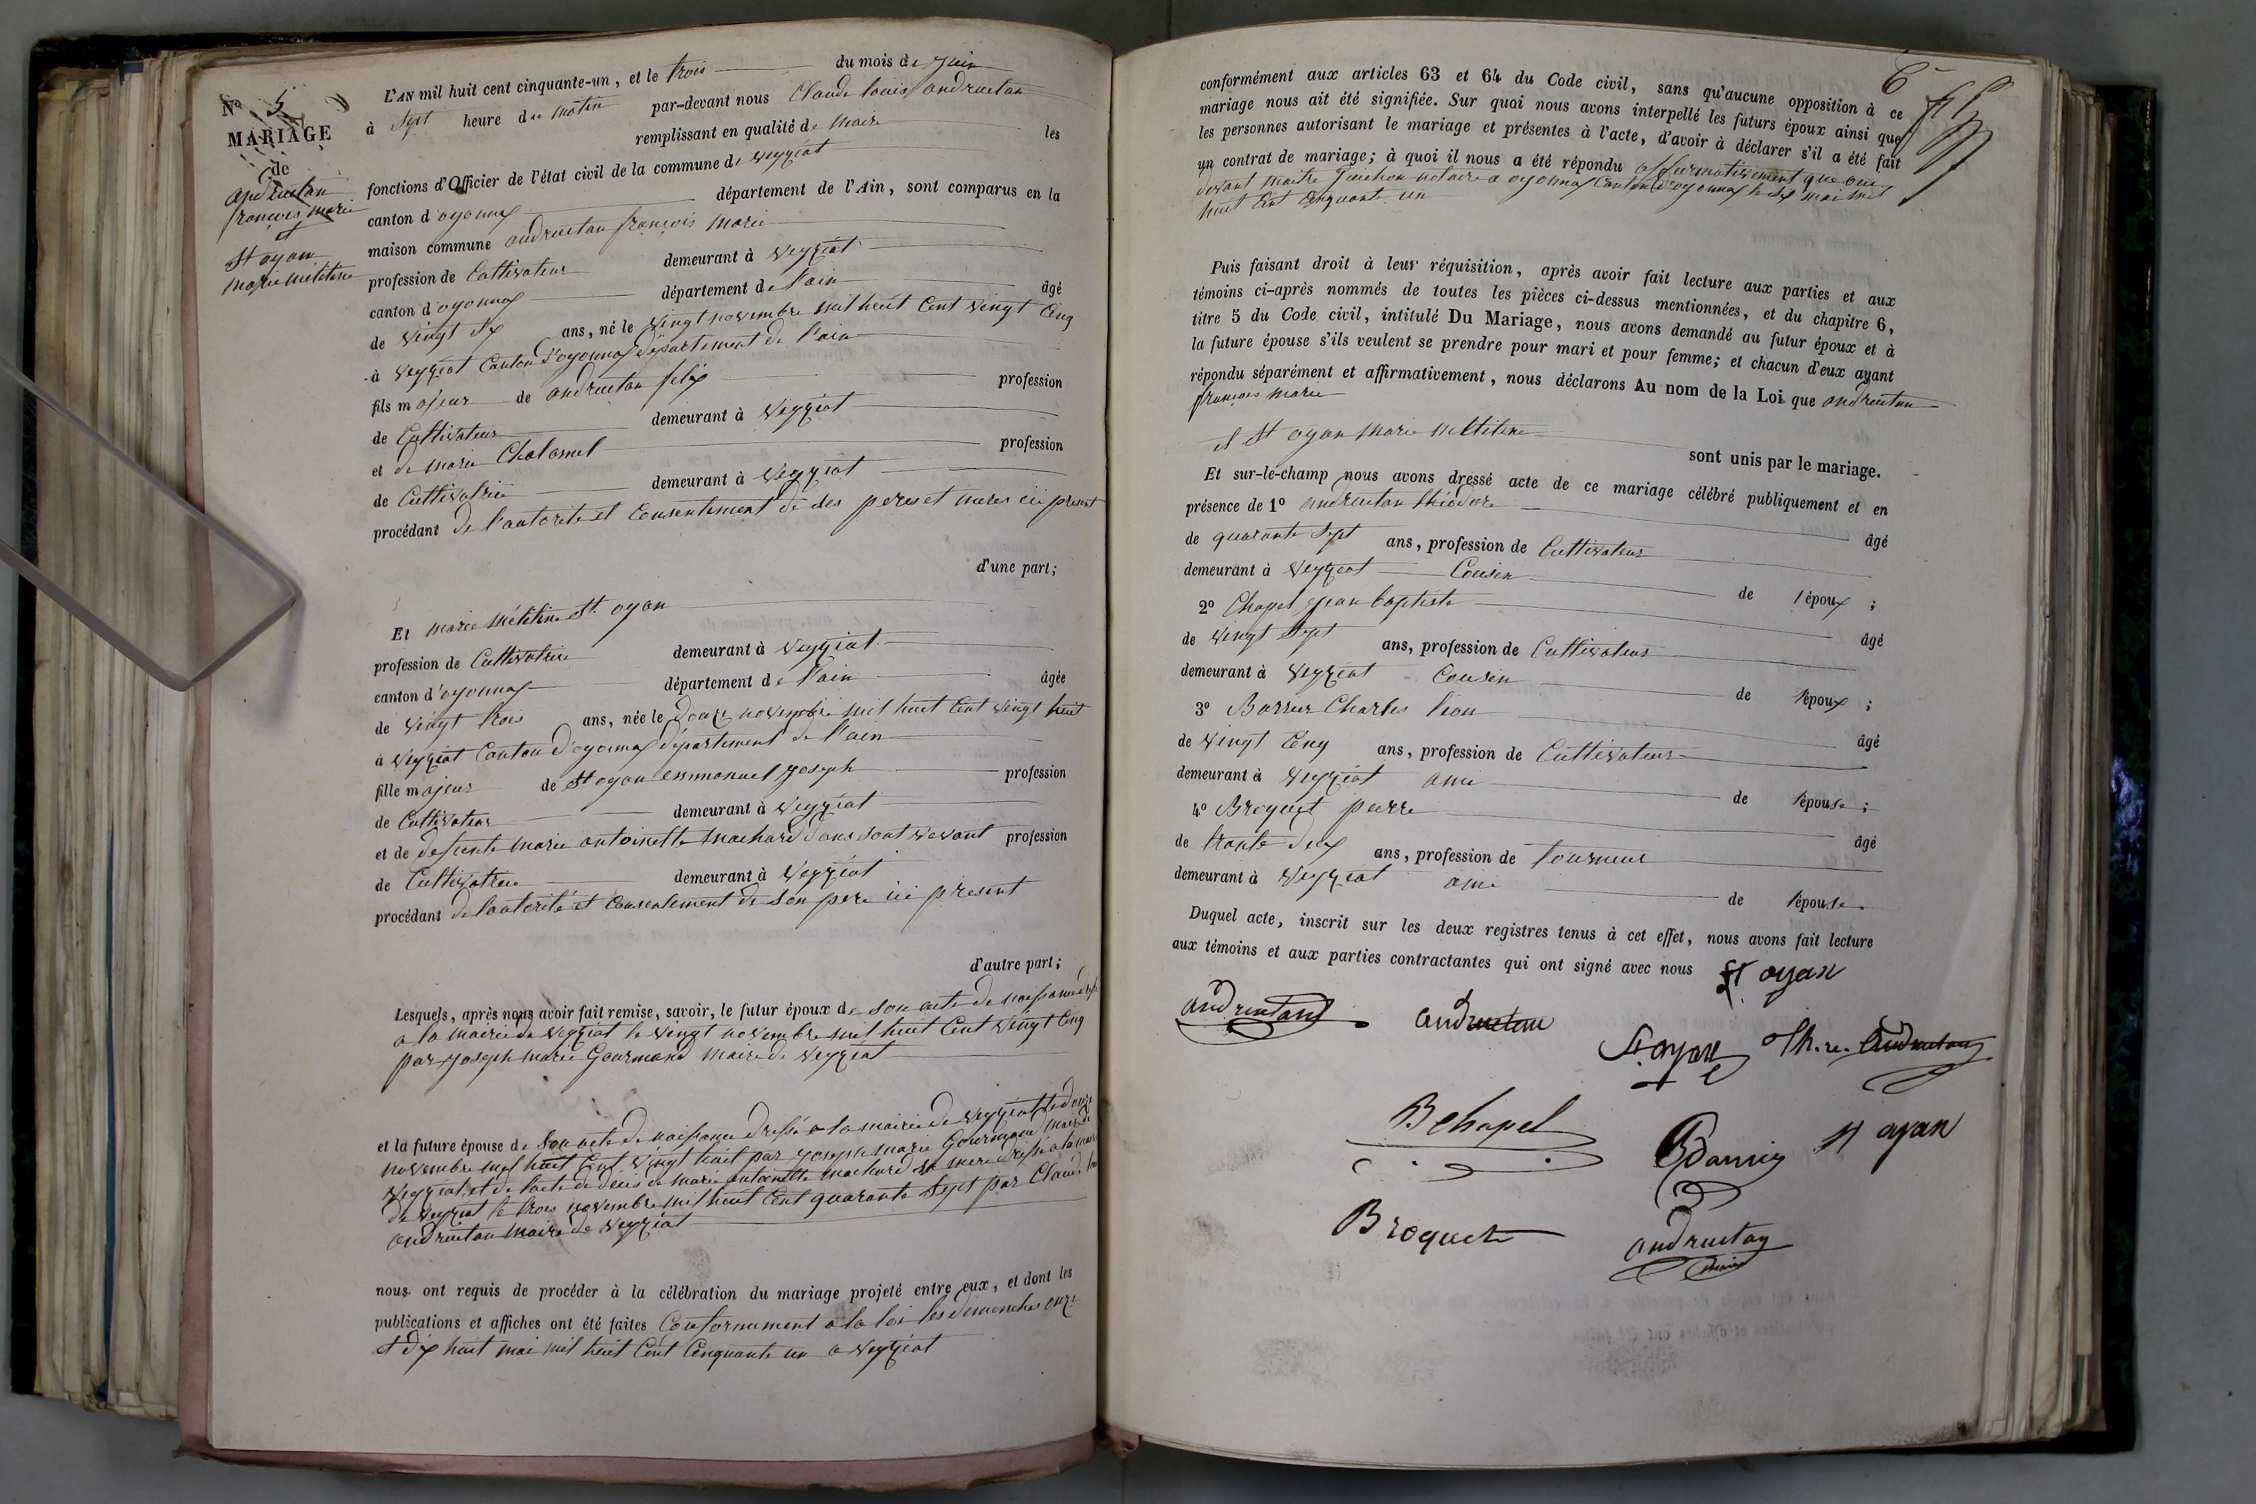 N° 5
MARIAGE
de
andruetan
françois marie
et
St oyan
marie mélitine
L'AN mil huit cent cinquante-un, et le trois du mois de juin
à sept heure du matin par-devant nous Claude louis andruetan
remplissant en qualité de maire les
fonctions d'Officier de l'état civil de la commune de veyziat
canton d'oyonnax département de l'Ain, sont comparus en la
maison commune andruetan françois marie
profession de Cultivateur demeurant à veyziat
canton d'oyonnax département de l'ain âgé
de vingt six ans, né le vingt novembre mil huit Cent vingt Cinq
à veyziat Canton d'oyonnax département de l'ain
fils majeur de andruetan felix profession
de Cultivateur demeurant à veyziat
et de marie Chalamel profession
de Cultivatrice demeurant à veyziat
procédant de l'autorité et Consentement de ses peres et meres ici present
d'une part;
Et marie mélitine St oyan
profession de Cultivatrice demeurant à veyziat
canton d'oyonnax département de l'ain âgée
de vingt trois ans, née le douze novembre mil huit Cent vingt huit
à veyziat Canton d'oyonnax département de l'ain
fille majeur de St oyan emmanuel joseph profession
de Cultivateur demeurant à veyziat
et de defunte marie antoinette machard dans sont vivant profession
de Cultivatrice demeurant à veyziat
procédant de l'autorité et Consentement de son pere ici present
d'autre part;
Lesquels, après nous avoir fait remise, savoir, le futur époux de son acte de naissance
a la mairie de veyziat le vingt novembre mil huit Cent vingt Cinq
par joseph marie Gourmand maire de veyziat
et la future épouse de son acte de naissance dressé a la mairie de veyziat le douze
novembre mil huit Cent vingt huit par joseph marie Gourmand maire de
veyziat et de l'acte de deces de marie antoinette machard sa mere dressé a la mairie
de veyziat le trois novembre mil huit Cent quarante sept par Claude
andruetan maire de veyziat
nous ont requis de procéder à la célébration du mariage projeté entre eux, et dont les
publications et affiches ont été faites Conformement a la loi les dimanches onze
et dix huit mai mil huit Cent Cinquante un a veyziat
conformément aux articles 63 et 64 du Code civil, sans qu'aucune opposition à ce
mariage nous ait été signifiée. Sur quoi nous avons interpellé les futurs époux ainsi que
les personnes autorisant le mariage et présentes à l'acte, d'avoir à déclarer s'il a été fait
un contrat de mariage; à quoi il nous a été répondu affirmativement que oui
devant maitre notaire a oyonnax Canton d'oyonnax le dix mai mil
huit Cent Cinquante un
Puis faisant droit à leur réquisition, après avoir fait lecture aux parties et aux
témoins ci-après nommés de toutes les pièces ci-dessus mentionnées, et du chapitre 6,
titre 5 du Code civil, intitulé Du Mariage, nous avons demandé au futur époux et à
la future épouse s'ils veulent se prendre pour mari et pour femme; et chacun d'eux ayant
répondu séparément et affirmativement, nous déclarons Au nom de la Loi que andruetan
françois marie
et St oyan marie mélitine
sont unis par le mariage.
Et sur-le-champ nous avons dressé acte de ce mariage célébré publiquement et en
présence de 1° andruetan théodore
âgé
de quarante sept ans, profession de Cultivateur
demeurant à veyziat Cousin de l'époux ;
2° Chapel jean baptiste
âgé
de vingt sept ans, profession de Cultivateur
demeurant à veyziat Cousin de l'époux ;
3° Charles léon
âgé
de vingt Cinq ans, profession de Cultivateur
demeurant à veyziat ami de l'épouse ;
4° Broquet pierre
âgé
de trante deux ans, profession de tourneur
demeurant à veyziat ami de l'épouse.
Duquel acte, inscrit sur les deux registres tenus à cet effet, nous avons fait lecture
aux témoins et aux parties contractantes qui ont signé avec nous St oyan
andruetan andruetan
St oyan Th.re. andruetan
B Chapel
St oyan
Broquet andruetan
maire